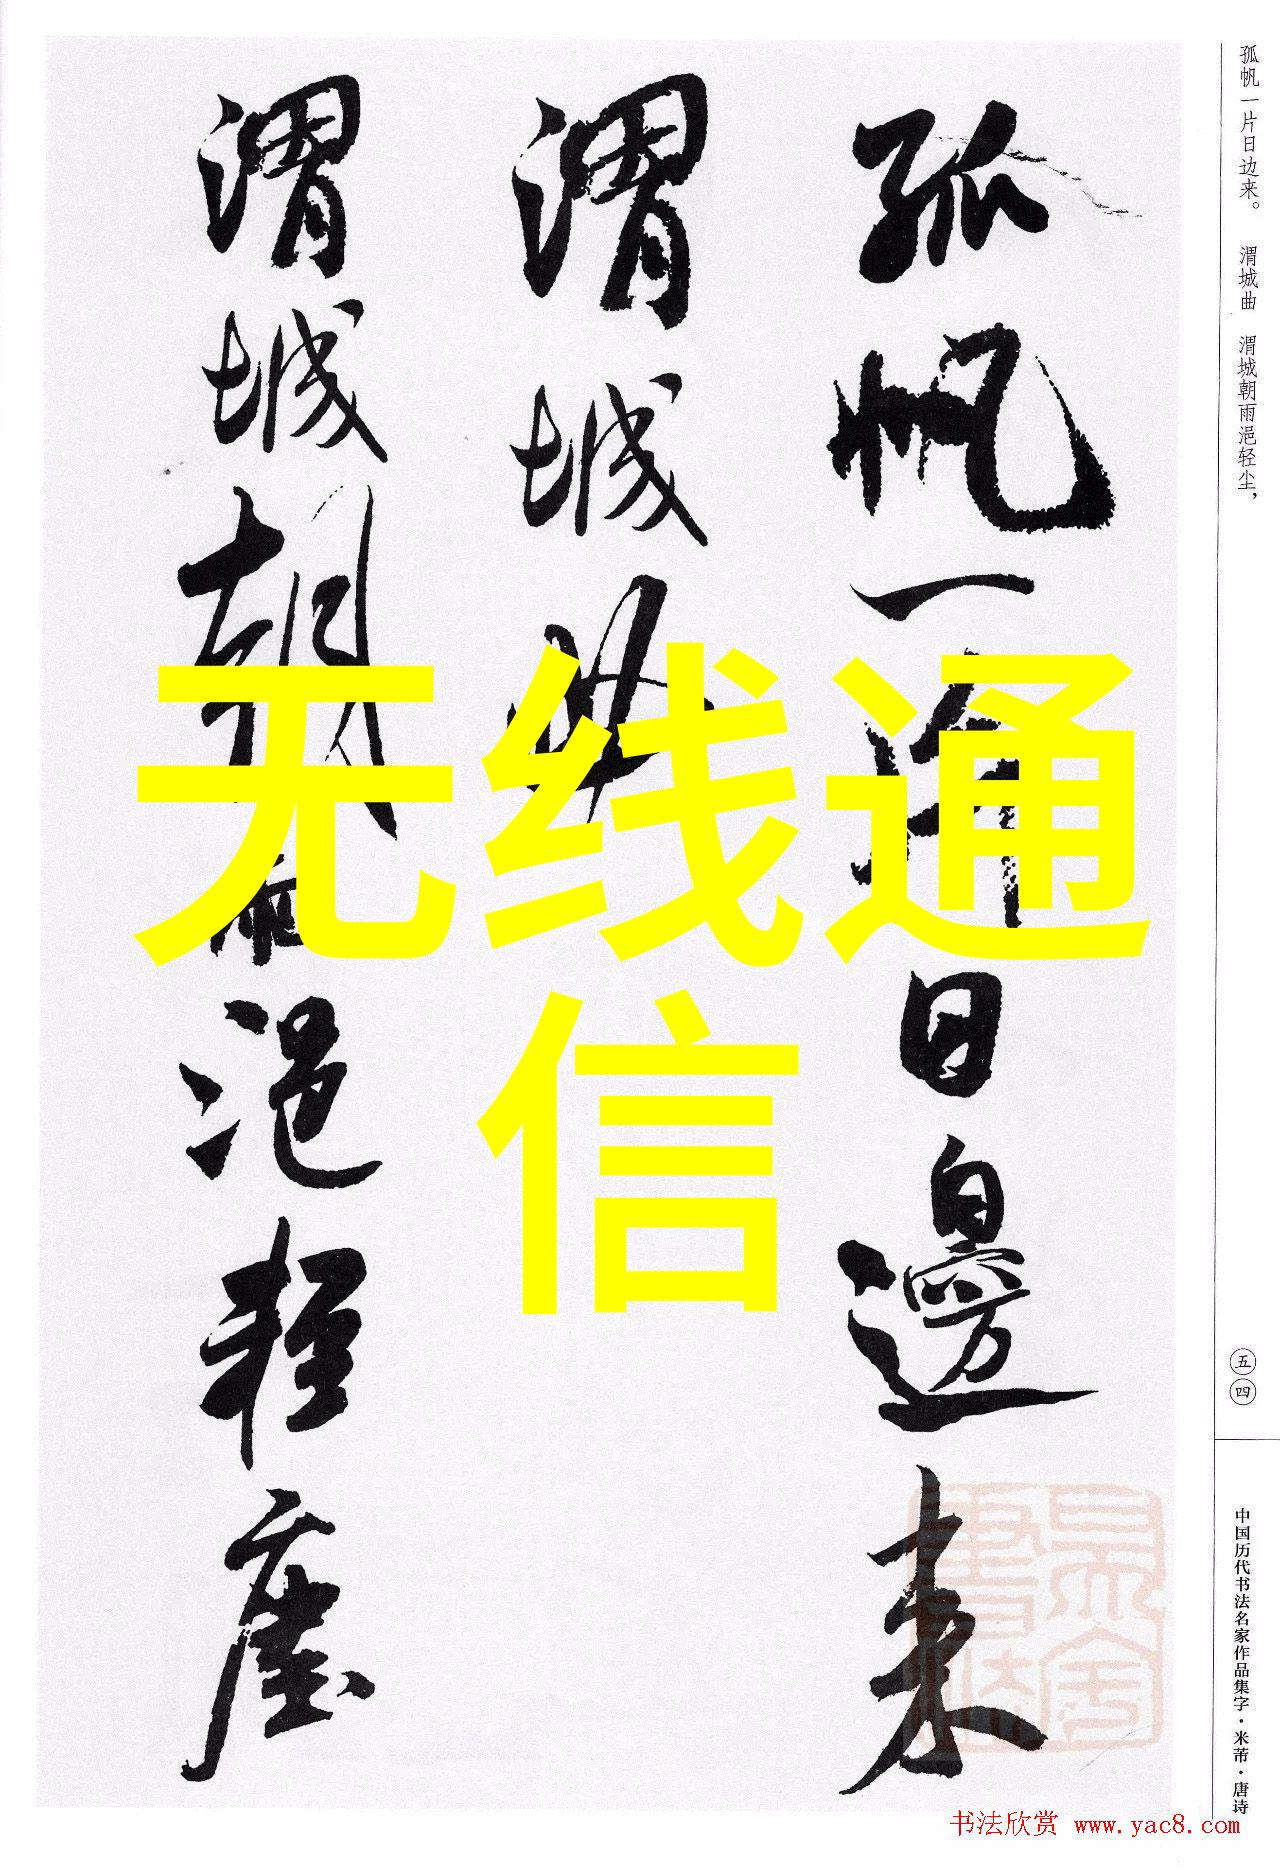 孤帆一片日边来。 渭城曲 渭城朝雨浥轻尘，
孤帆一片日邊来
渭城曲
渭城朝雨浥轻塵
无线通
信
五四
中国历代书法名家作品集字·米芾·唐诗
书法欣赏 www.yac8.com